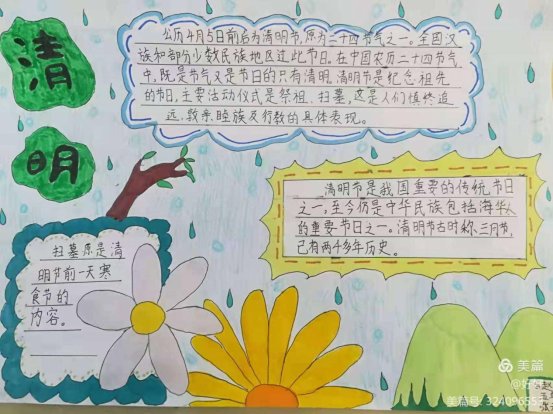 清
明
公历4月5日前后为清明节,原为二十四节气之一。全国汉
族和部分少数民族地区过此节日。在中国农历二十四节气
中,既是节气又是节日的只有清明。清明节是纪念祖先
的节日,主要活动仪式是祭祖、扫墓,这是人们慎终追
远、敦亲睦族及行教的具体表现。
清明节是我国重要的传统节日
之一,至今仍是中华民族包括海华人
的重要节日之一。清明节古时称三月节,
已有两千多年历史。
扫墓原是清
明节前一天寒
食节的
内容。
美篇
美篇号:324096557